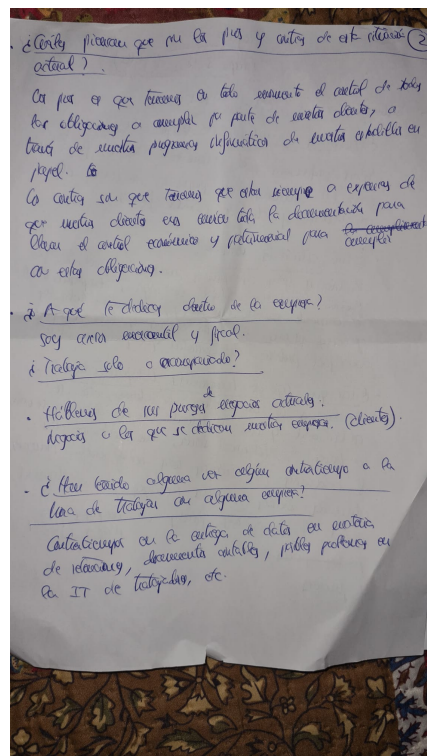 ¿Cuáles piensan que son los pros y contras de esta situación 2
actual?
Los pros es que tenemos en todo momento el control de todas
las obligaciones a cumplir por parte de nuestros clientes, a
través de nuestros programas informáticos de nuestras en
papel.
Los contras son que tenemos que estar siempre a expensas de
que nuestros clientes nos toda la documentación para
llevar el control económico y patrimonial para cumplir
con estas obligaciones.
¿A qué te dedicas dentro de la empresa?
Soy asesor y fiscal.
¿Trabaja solo o acompañado?
Háblenos de sus negocios actuales.
Negocios a los que se dedican nuestras empresas. (clientes).
¿Han tenido alguna vez algún contratiempo a la
hora de trabajar con alguna empresa?
Contratiempos en la entrega de datos en materia
de retenciones, documentos contables, posibles problemas en
la IT de trabajadores, etc.